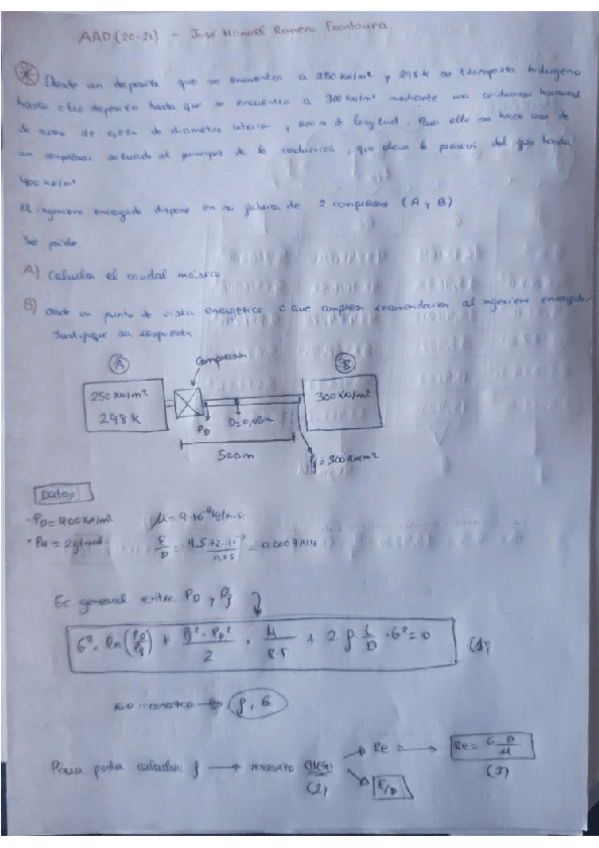 AAD (20-21) - José Manuel Romero
Desde un deposito que se encuentra a 250 KN/m² y 298 K se transporta hidrógeno
hasta otro deposito que se encuentra a 300 KN/m² mediante una conducción horizontal
de acero de de diametro interior y 500 m de longitud. Para ello se hace uso de
un compresor situado al principio de la conducción, que eleva la presión del gas hasta
400 KN/m²
El ingeniero encargado dispone en su de 2 compresores (A y B)
Se pide
A) Calcular el caudal másico
B) un punto de vista energético ¿ que compresor al ingeniero encargado
Justifique su respuesta
A
Compresor
B
250 KN/m²
298 K
300 KN/m²
P_D
D=0,05m
500m
P_f = 300 KN/m²
Datos
· P_D = 400 KN/m²
μ = 9·10⁻⁶ kg/m·s
= 2g/mol
Ec general entre P_D y P_f
G² · ln(P_D/P_f) + (P_f² - P_D²)/2 · M/(R·T) + 2 · f · L/D · G² = 0
(1)
f, G
Para poder calcular f → →
Re = → Re = G·D/μ
(2)
ε/D
(3)